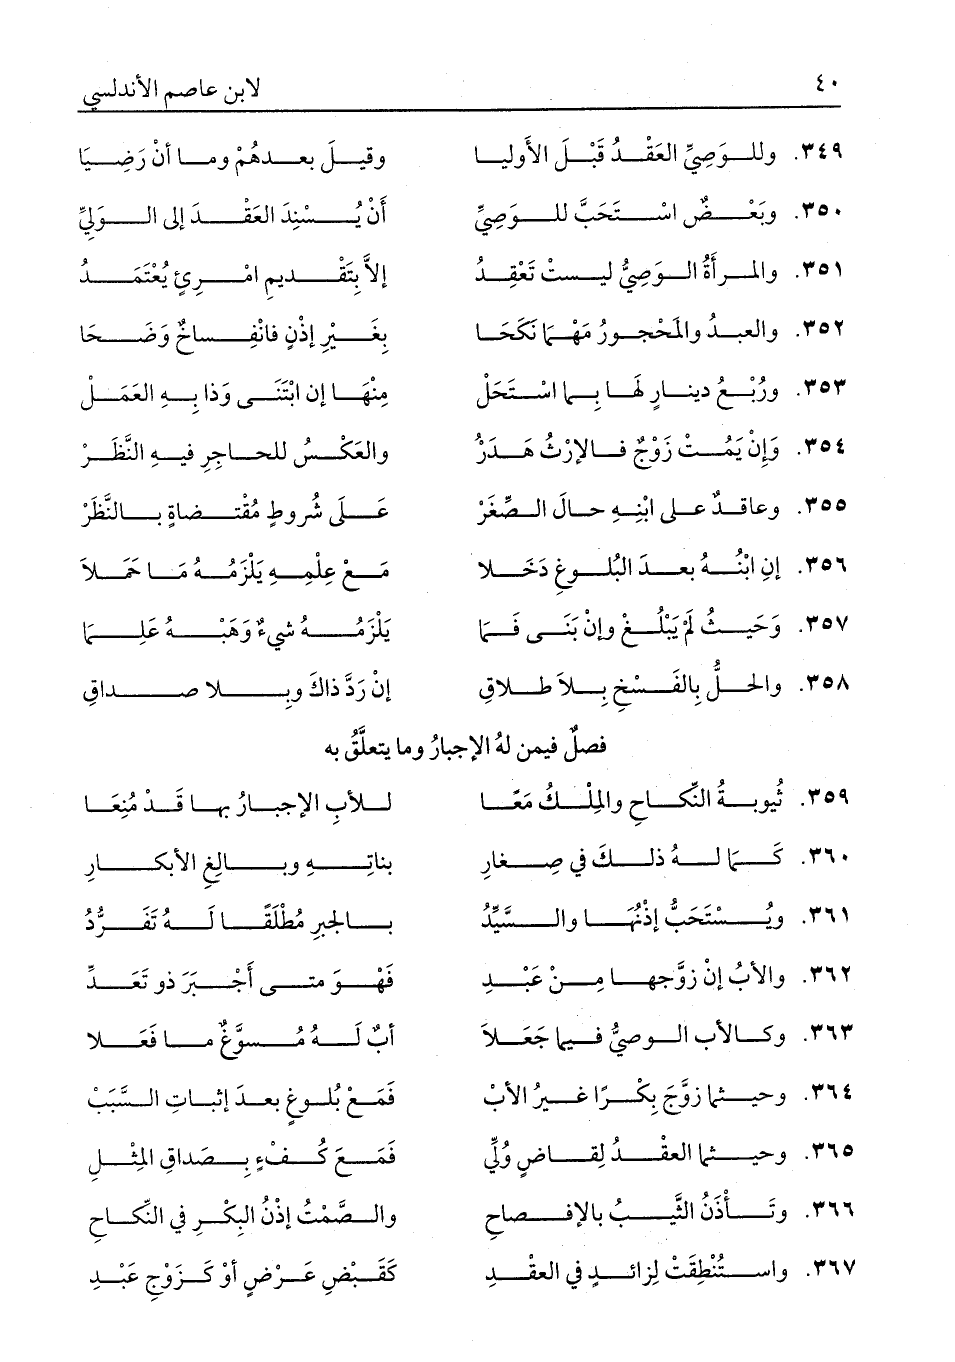 ٤٠ لابن عاصم الأندلسي
٣٤٩. وللوَصِيِّ العَقْدُ قَبْلَ الأَوليا وقيلَ بعدهُمْ وما أنْ رَضِيَا
٣٥٠. وبَعْضٌ اسْتَحَبَّ للوَصِيِّ أَنْ يُسْنِدَ العَقْدَ إلى الوَليِّ
٣٥١. والمرأةُ الوَصِيُّ ليستْ تَعْقِدُ إلاَّ بِتَقْديمِ امْرِئٍ يُعْتَمَدُ
٣٥٢. والعبدُ والمَحْجورُ مَهْمَا نَكَحَا بِغَيْرِ إذْنٍ فانْفِساخٌ وَضَحَا
٣٥٣. ورُبْعُ دينارٍ لهَا بِما اسْتَحَلْ مِنْهَا إن ابْتَنَى وَذا بِهِ العَمَلْ
٣٥٤. وَإِنْ يَمُتْ زَوْجٌ فالإرْثُ هَدَرْ والعَكْسُ للحاجِرِ فيهِ النَّظَرْ
٣٥٥. وعاقدٌ على ابْنِهِ حالَ الصِّغَرْ عَلَى شُروطٍ مُقْتضاةٍ بالنَّظَرْ
٣٥٦. إنِ ابْنُهُ بعدَ البُلوغِ دَخَلا مَعْ عِلْمِهِ يَلْزَمُهُ مَا حَمَلاَ
٣٥٧. وَحَيثُ لَمْ يَبْلُغْ وإنْ بَنَى فَمَا يَلْزَمُهُ شيءٌ وَهَبْهُ عَلِمَا
٣٥٨. والحلُّ بِالفَسْخِ بِلاَ طلاقِ إنْ رَدَّ ذاكَ وبِلا صداقِ
فصلٌ فيمن لهُ الإجبارُ وما يتعلَّقُ به
٣٥٩. ثُيوبةُ النِّكاحِ والمِلْكُ مَعًا للأبِ الإجبارُ بها قَدْ مُنِعَا
٣٦٠. كَمَا لهُ ذلكَ في صِغارِ بناتِهِ وبالِغِ الأبكارِ
٣٦١. ويُسْتَحَبُّ إذْنُهَا والسَّيِّدُ بالجبرِ مُطْلَقًا لَهُ تَفَرُّدُ
٣٦٢. والأبُ إنْ زوَّجها مِنْ عَبْدِ فَهْوَ متى أَجْبَرَ ذو تَعَدِّ
٣٦٣. وكالأب الوصيُّ فيما جَعَلاَ أبٌ لَهُ مُسوَّغٌ ما فَعَلا
٣٦٤. وحيثما زوَّجَ بِكْرًا غيرُ الأبْ فَمَعْ بُلوغٍ بعدَ إثباتِ السَّبَبْ
٣٦٥. وحيثما العقدُ لِقاضٍ وُلِّي فَمَعَ كُفْءٍ بِصَداقِ المِثْلِ
٣٦٦. وتَأْذَنُ الثَّيبُ بالإفصاحِ والصَّمْتُ إذْنُ البِكْرِ في النِّكاحِ
٣٦٧. واستُنْطِقَتْ لِزائدٍ في العقْدِ كَقَبْضِ عَرْضٍ أوْ كَزَوْجٍ عَبْدِ